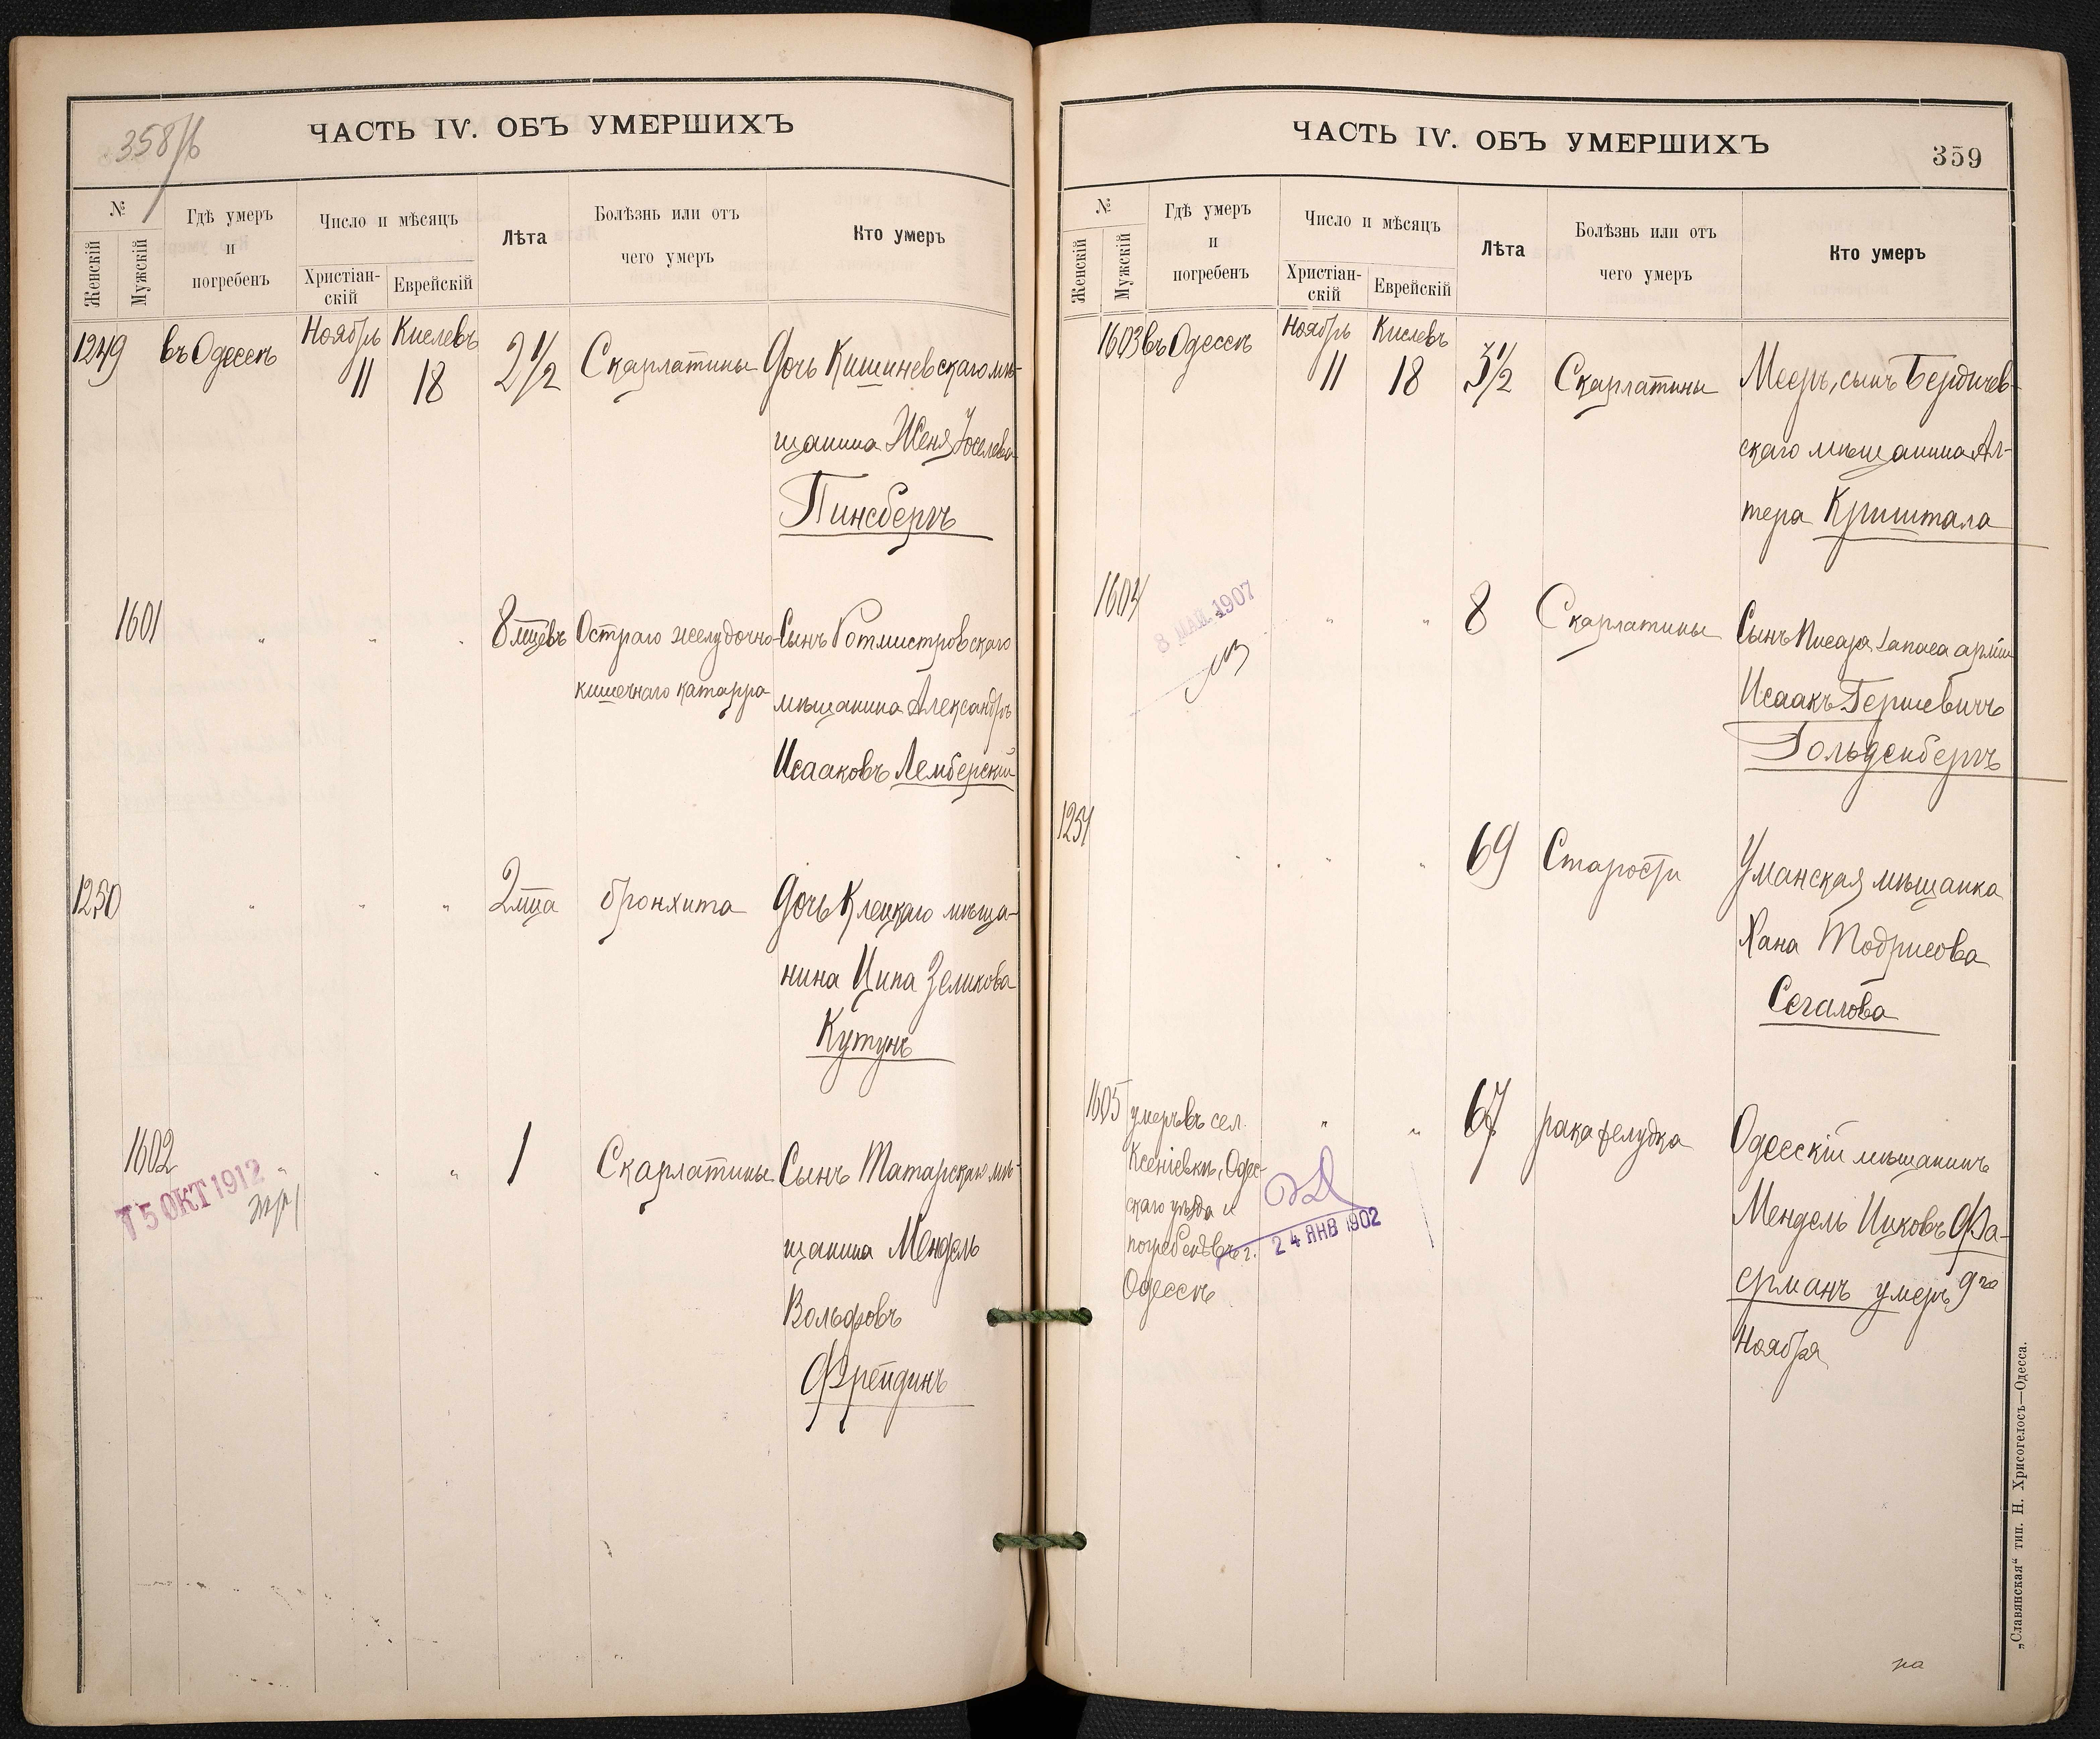 358/б
ЧАСТЬ IV. ОБЪ УМЕРШИХЪ
№
Женскій
Мужскій
Гдѣ умеръ
и
погребенъ
Число и мѣсяцъ
Христіан-
скій
Еврейскій
Лѣта
Болѣзнь или отъ
чего умеръ
Кто умеръ
1249 въ Одессѣ Ноябрь 11 Кислевъ 18 2 1/2 Скарлатины Дочь Кишиневскаго мѣ-
щанина Женя Іоселева
Пинсбергъ
1601 " " " 8 мцевъ Остраго желудочно Сынъ Ротмистровскаго
кишечнаго катарра мѣщанина Александръ
Исааковъ Лемберскій
1250 " " " 2 мца бронхита Дочь Клецкаго мѣща-
нина Ципа Зеликова
Кутунъ
1602 " " " 1 Скарлатины Сынъ Татарскаго мѣ-
15 ОКТ 1912
щанина Мендель
Вольфовъ
Фрейдинъ
ЧАСТЬ IV. ОБЪ УМЕРШИХЪ
359
№
Женскій
Мужскій
Гдѣ умеръ
и
погребенъ
Число и мѣсяцъ
Христіан-
скій
Еврейскій
Лѣта
Болѣзнь или отъ
чего умеръ
Кто умеръ
1603 въ Одессѣ Ноябрь 11 Кислевъ 18 3 1/2 Скарлатины Мееръ, сынъ Бердичев-
скаго мѣщанина Ал-
тера Криштала
1604 " " 8 Скарлатины Сынъ Писаря запаса арміи
8 МАЯ 1907
Исаакъ Гершевичъ
Гольденбергъ
1251 " " " " 69 Старости Уманская мѣщанка
Хана Тодрисова
Сегалова
1605 умеръ въ сел. " " 67 рака желудка Одесскій мѣщанинъ
Ксеніевкѣ, Одес-
скаго уѣзда и
погребенъ въ г.
Одессѣ
24 ЯНВ 1902
Мендель Ицковъ Фа-
ерманъ умеръ 9го
Ноября
„Славянская“ тип. Н. Хрисогелосъ—Одесса.